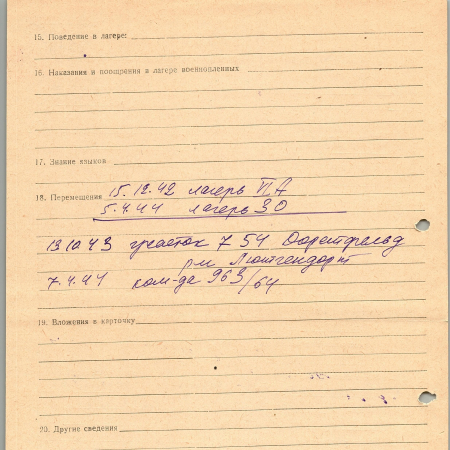 15. Поведение в лагере:
16. Наказания и поощрения в лагере военнопленных
17. Знание языков
18. Перемещения 15.12.42 лагерь ПА
5.4.44 лагерь 30
13.10.43 участок 7 54
рм Лютгендорт
7.4.44 ком-да 963/64
19. Вложения в карточку
20. Другие сведения